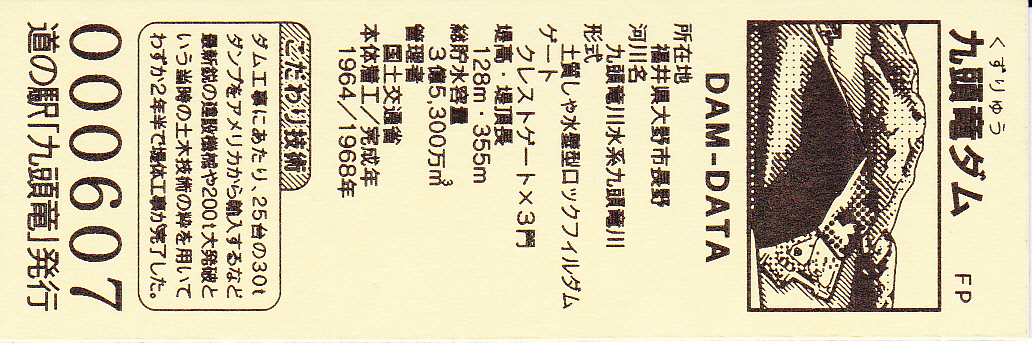 くずりゅう
九頭竜ダム
FP
DAM-DATA
所在地
福井県大野市長野
河川名
九頭竜川水系九頭竜川
形式
土質しゃ水壁型ロックフィルダム
ゲート
クレストゲート×3門
堤高・堤頂長
128m・355m
総貯水容量
3億5,300万m³
管理者
国土交通省
本体着工/完成年
1964/1968年
こだわり技術
ダム工事にあたり、25台の30t
ダンプをアメリカから輸入するなど
最新鋭の建設機械や200t大発破と
いう当時の土木技術の粋を用いて
わずか2年半で堤体工事が完了した。
000607
道の駅「九頭竜」発行